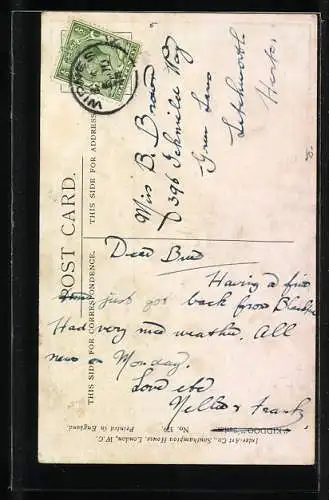 POST CARD.
THIS SIDE FOR CORRESPONDENCE.
THIS SIDE FOR ADDRESS
WIDNES
Miss B. Brown
396 Icknield Way
Green Lane
Letchworth
Herts
Dear
Having a fine
just got back from
Had very nice weather. All
news Monday.
Love etc
Nellie &
"KIDDO"
No. 179
Inter-Art Co., Southampton House, London, W.C.
Printed in England.